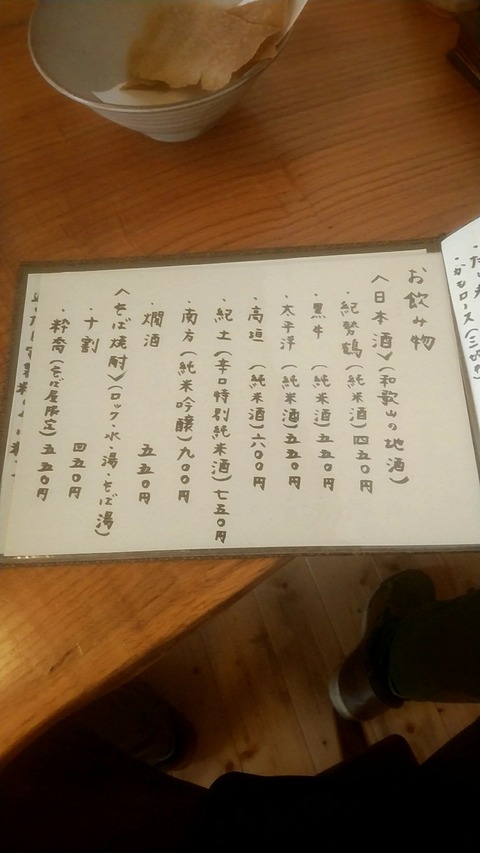 ・かもロース(三
お飲み物
〈日本酒〉(和歌山の地酒)
・紀勢鶴(純米酒)四五〇円
・黒牛(純米酒)五五〇円
・太平洋(純米酒)五五〇円
・高垣(純米酒)六〇〇円
・紀土(辛口特別純米酒)七五〇円
・南方(純米吟醸)九〇〇円
・燗酒 五五〇円
〈そば焼酎〉(ロック・水・湯・そば湯)
・十割 四五〇円
・粋蕎(そば屋限定)五五〇円